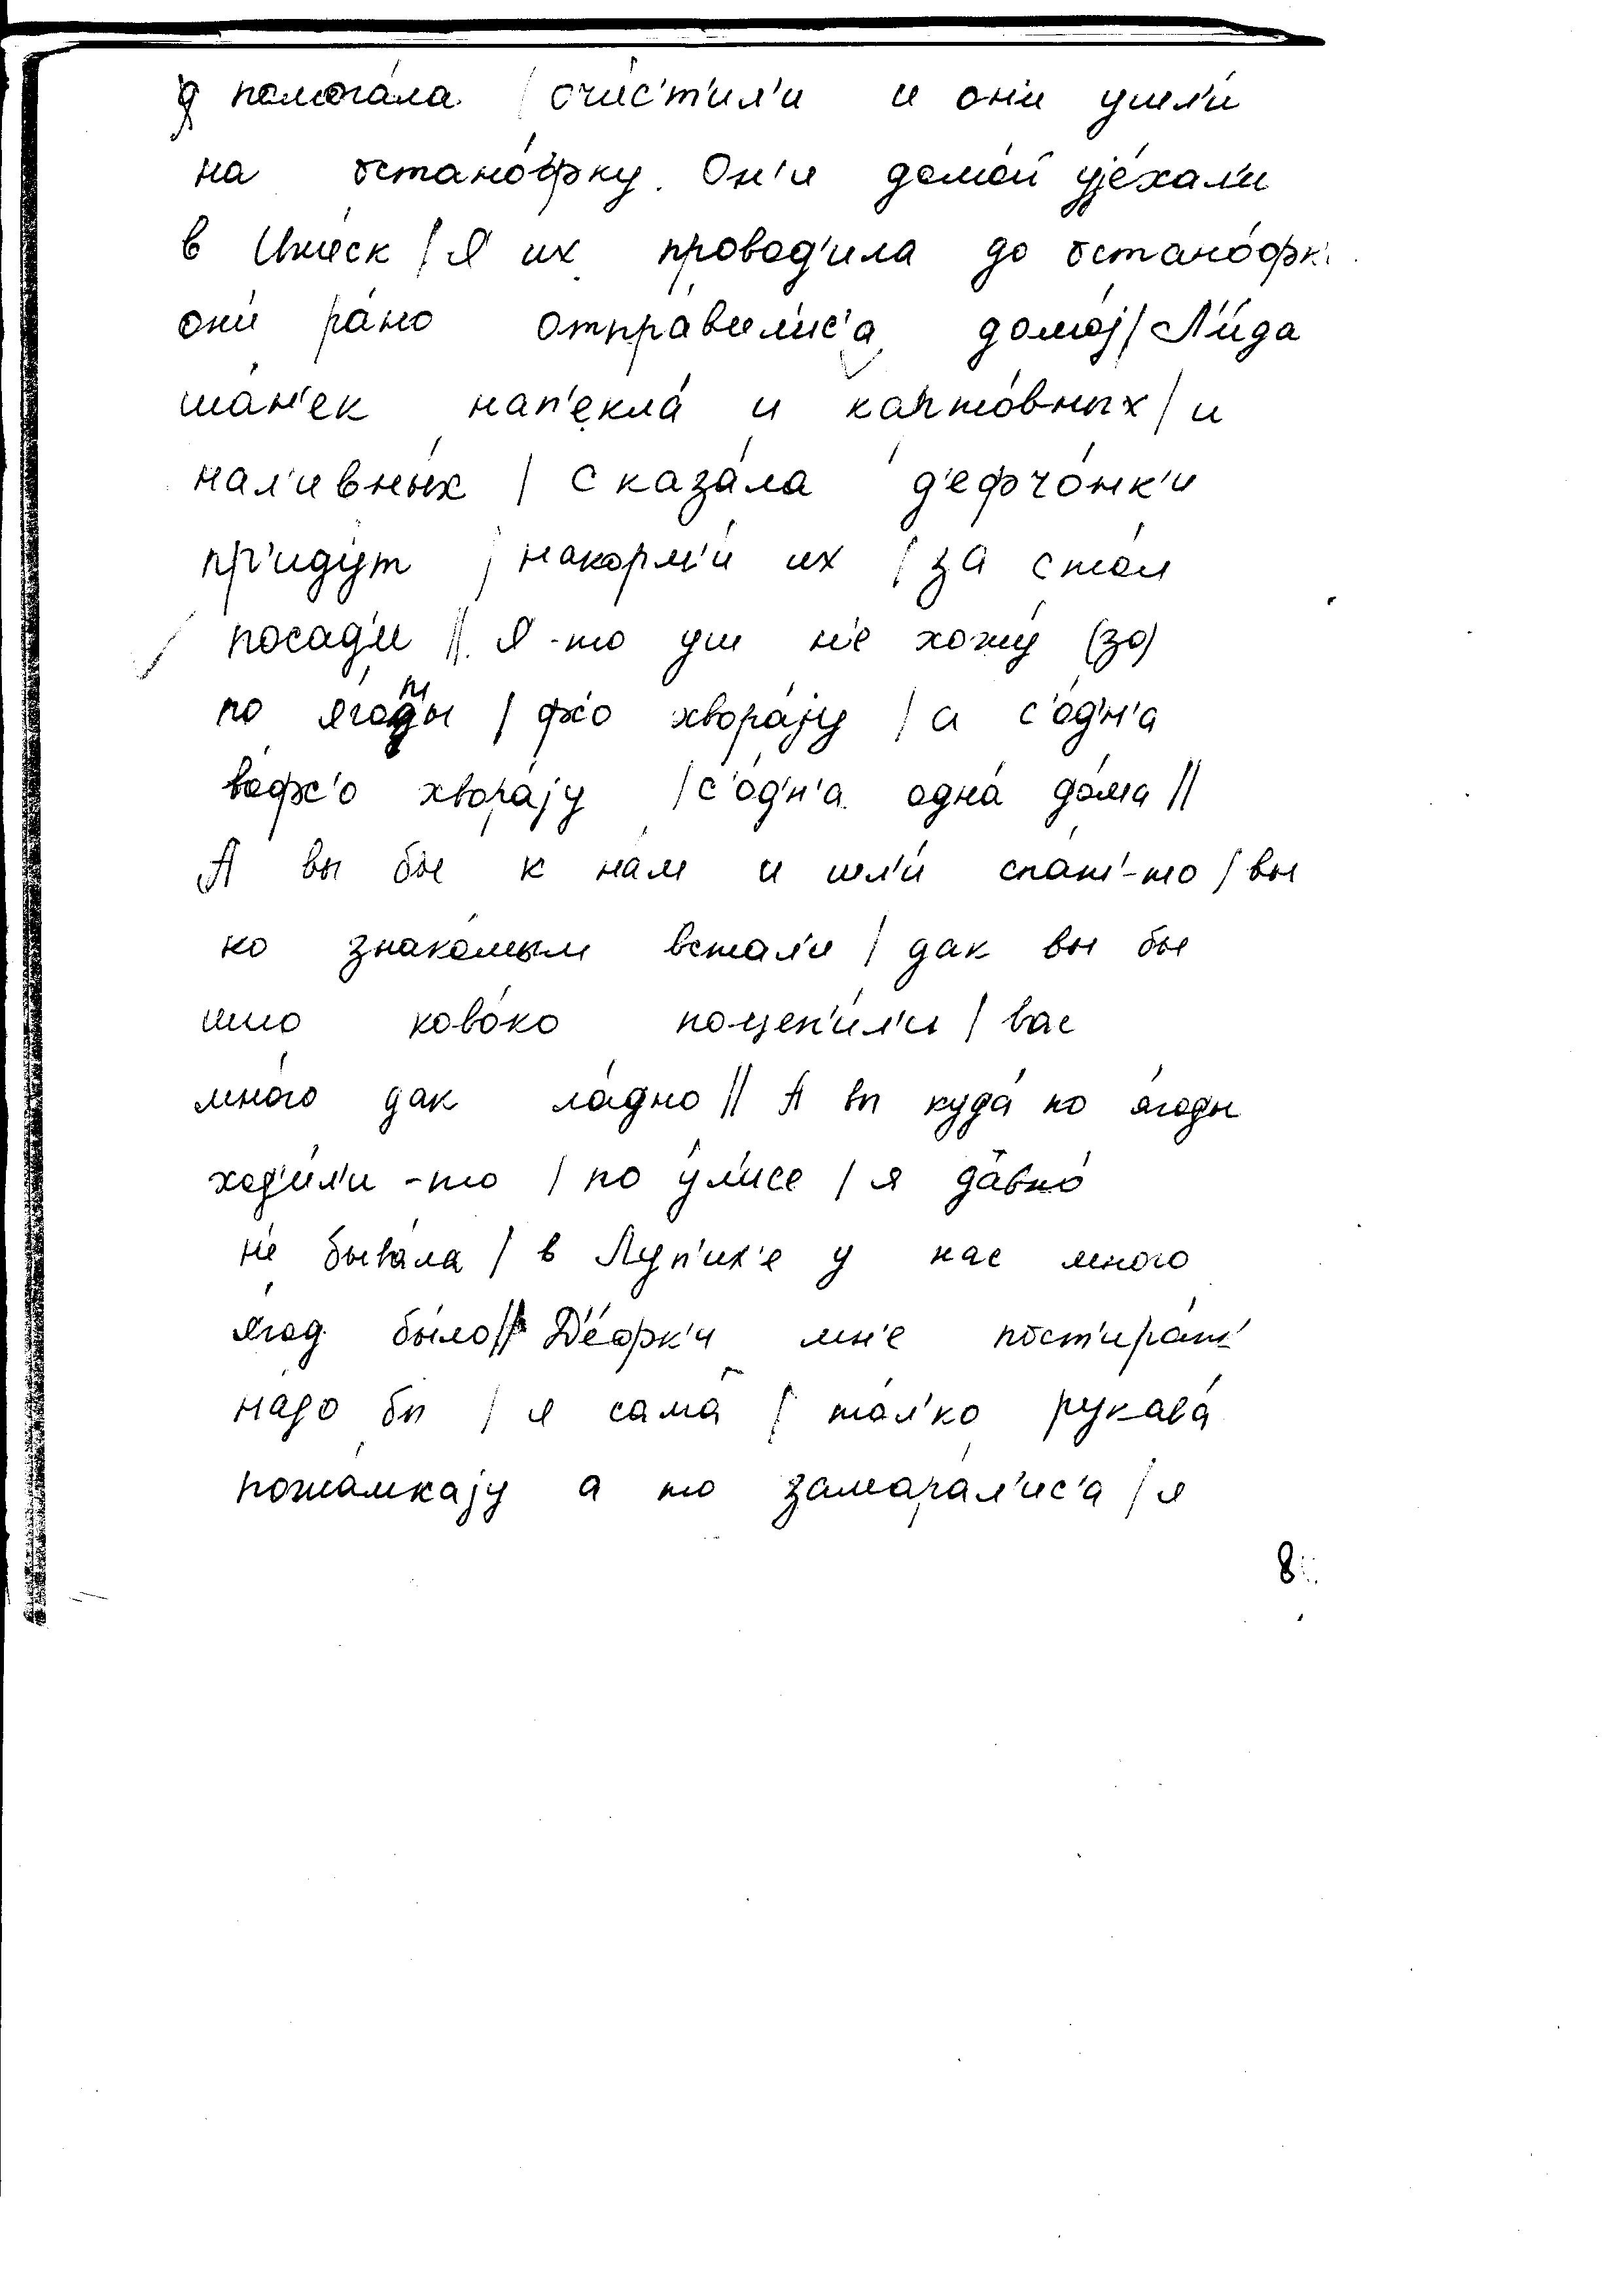 я помога́ла / очи́с'т'ил'и и он'и ушл'и́
на остано́фку. Он'и домо́й ује́хал'и
в Иже́ск / Я их провод'и́ла до остано́фк'и
они́ ра́но отпра́вил'ис'а домо́ј / Л'и́да
ша́н'ек нап'екла́ и картовных / и
нал'ивны́х / сказа́ла д'ефчо́нк'и
пр'иду́т / накорм'и́ их / за стол
посад'и́ // Я-то уш н'е хожу́ (зо)
по ягоды / фс'о хвора́ју / а с'о́д'н'а
вофс'о хвора́ју / с'о́д'н'а одна́ до́ма //
А вы бы к нам и шл'и́ спат'-то / вы
ко знако́мым встал'и / дак вы бы
што ково́ко поцеп'и́л'и / вас
мно́го дак ла́дно // А вы куда́ по я́годы
ход'и́л'и-то / по у́л'исе / я давно́
н'е быва́ла / в Луп'их'е у нас много
я́год бы́ло // Д'е́фк'и мн'е пост'ира́т'
на́до бы / я сама́ / тол'ко рукава́
пожа́мкају а то замара́л'ис'а / я
8